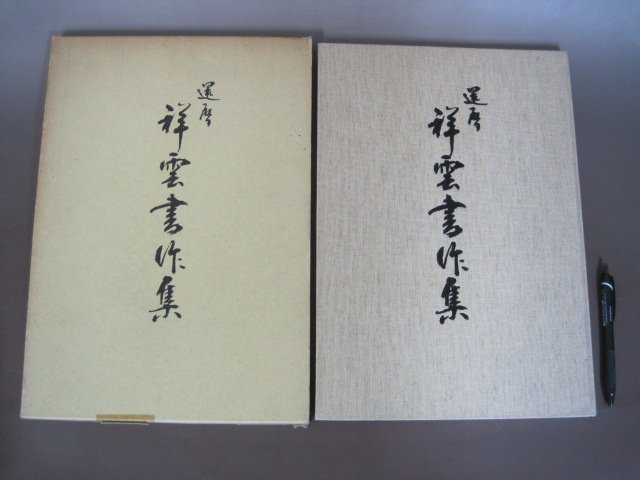 還暦
祥雲書作集
還暦
祥雲書作集